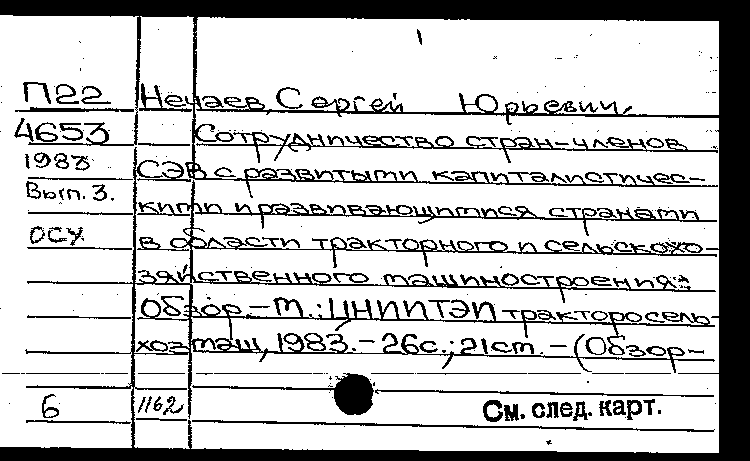 П22 Нечаев, Сергей Юрьевич.
4653 Сотрудничество стран-членов
1983 СЭВ с развитыми капиталистичес-
Вып. 3. кими и развивающимися странами
ОСУ в области тракторного и сельскохо-
зяйственного машиностроения:
Обзор.-М.:ЦНИИТЭИ тракторосель-
хозмаш, 1983.-26с.; 21см.-(Обзор-
Б 1162 См. след. карт.